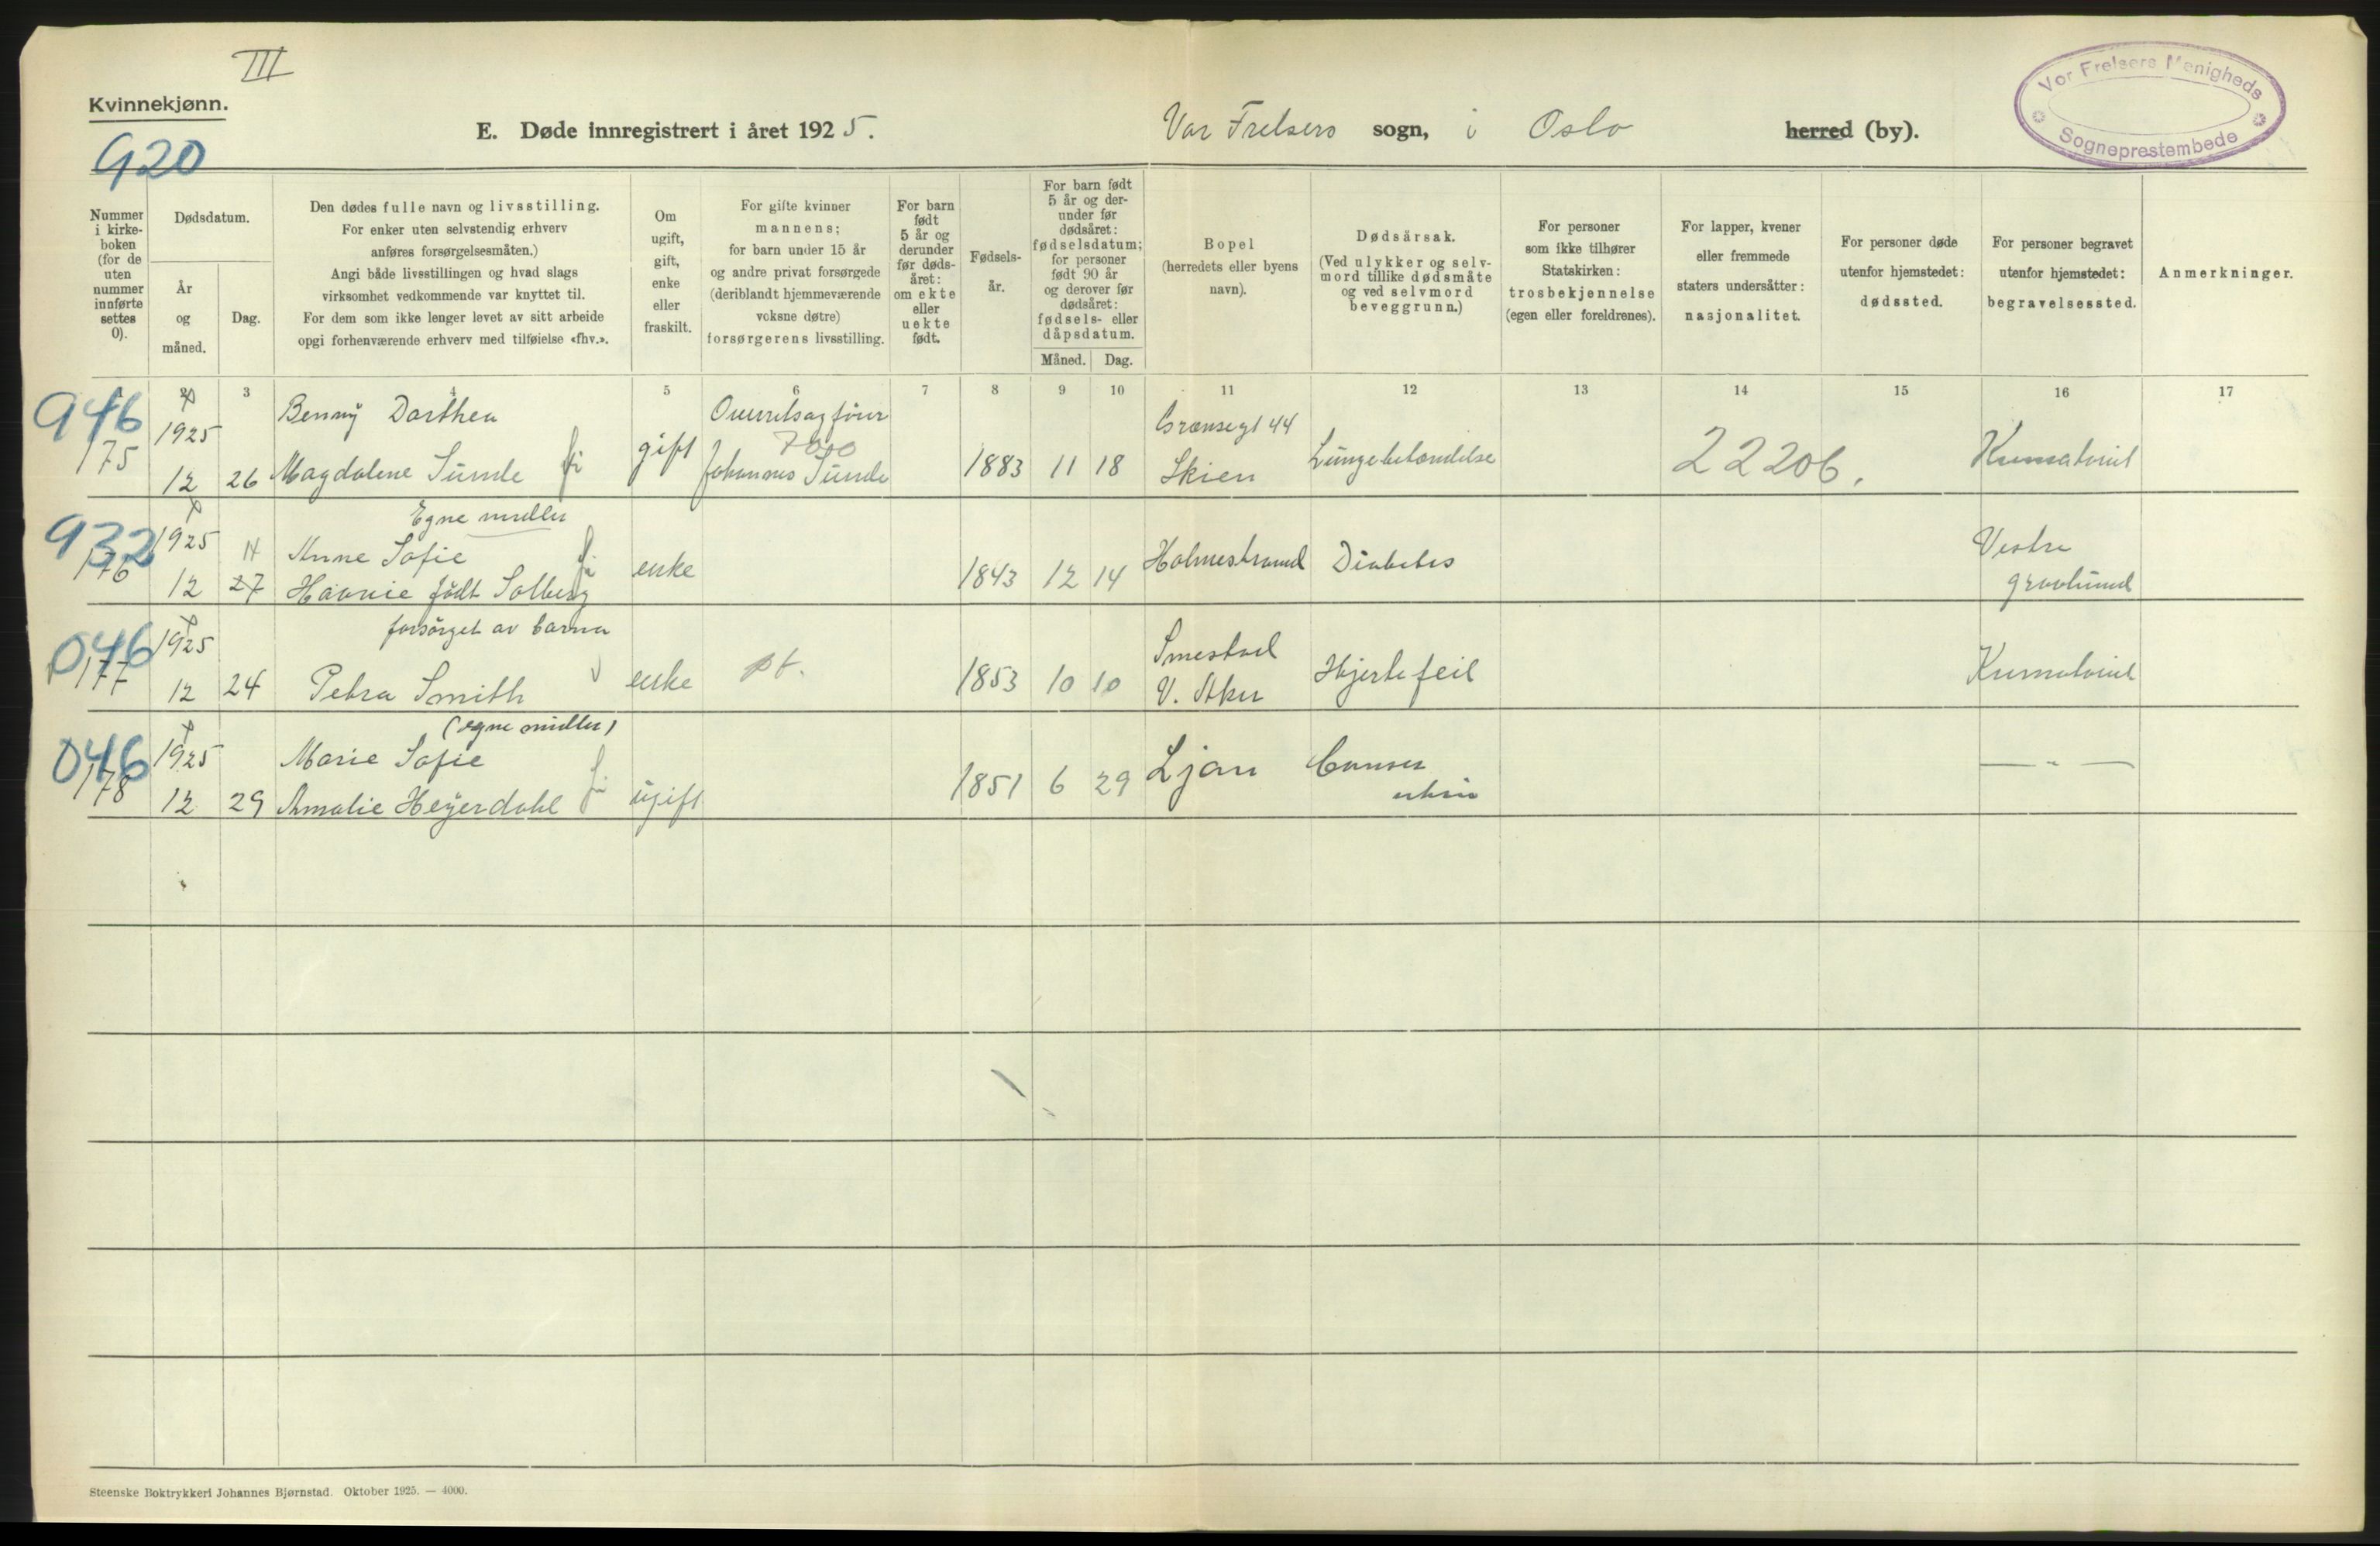 III
Kvinnekjønn.
920
E. Døde innregistrert i året 1925.
Vor Frelsers sogn, i Oslo herred (by).
Vor Frelsers Menigheds
Sogneprestembede
Nummer
i kirke-
boken
(for de
uten
nummer
innførte
settes
0).
Dødsdatum.
År
og
måned.
Dag.
Den dødes fulle navn og livsstilling.
For enker uten selvstendig erhverv
anføres forsørgelsesmåten.)
Angi både livsstillingen og hvad slags
virksomhet vedkommende var knyttet til.
For dem som ikke lenger levet av sitt arbeide
opgi forhenværende erhverv med tilføielse «fhv.».
Om
ugift,
gift,
enke
eller
fraskilt.
For gifte kvinner
mannens;
for barn under 15 år
og andre privat forsørgede
(deriblandt hjemmeværende
voksne døtre)
forsørgerens livsstilling.
For barn
født
5 år og
derunder
før døds-
året:
om ekte
eller
uekte
født.
Fødsels-
år.
For barn født
5 år og der-
under før
dødsåret:
fødselsdatum;
for personer
født 90 år
og derover før
dødsåret:
fødsels- eller
dåpsdatum.
Måned. Dag.
Bopel
(herredets eller byens
navn).
Dødsårsak.
(Ved ulykker og selv-
mord tillike dødsmåte
og ved selvmord
beveggrunn.)
For personer
som ikke tilhører
Statskirken:
trosbekjennelse
(egen eller foreldrenes).
For lapper, kvener
eller fremmede
staters undersåtter:
nasjonalitet.
For personer døde
utenfor hjemstedet:
dødssted.
For personer begravet
utenfor hjemstedet:
begravelsessted.
Anmerkninger.
3 4 5 6 7 8 9 10 11 12 13 14 15 16 17
946
175
1925
12 26
Benny Dorthea
Magdalene Sunde
gift
700
Johannes Sunde
1883 11 18
Grensegt 44
Skien
Lungebetændelse
22206.
Krematoriet
932
176
1925
12 27
Egne midler
Anne Sofie
født Solberg
enke
1843 12 14
Holmestrand
Diabetes
Vestre
gravlund
046
177
1925
12 24
forsørget av barna
Petra Smith
enke
pt.
1853 10 10
Smestad
V. Aker
Hjertefeil
Krematoriet
046
178
1925
12 29
(egne midler)
Marie Sofie
Amalie Heyerdahl
ugift
1851 6 29
Ljan
Cancer
uteri
— " —
Steenske Boktrykkeri Johannes Bjørnstad. Oktober 1925. — 4000.